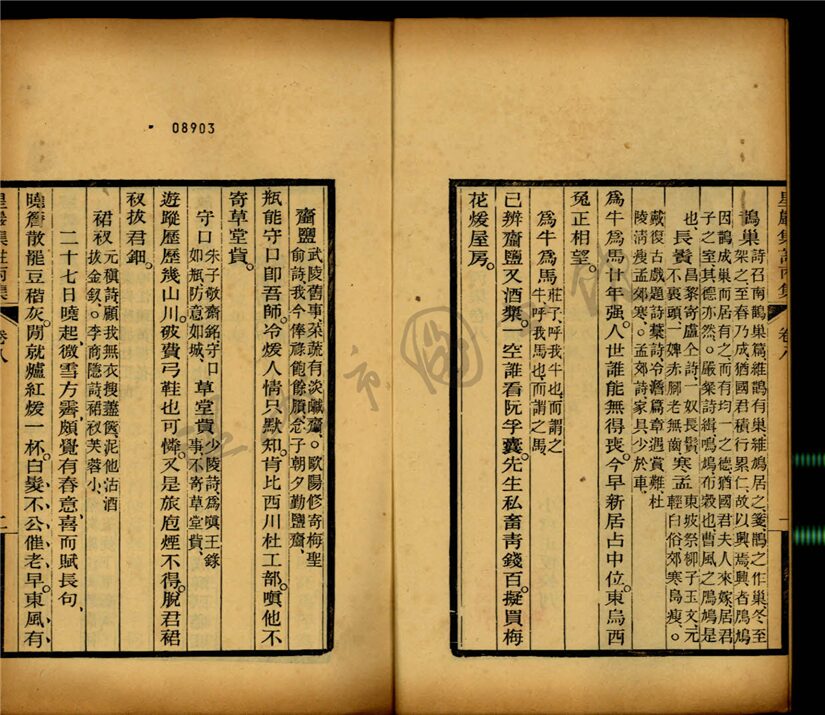 08903
星巖集註丙集 卷八 一
鵲巢 詩召南鵲巢篇、維鵲有巢、維鳩居之、箋、鵲之作巢、冬至
架之、至春乃成、猶國君積行累仁、故以興焉、興者、鳲鳩
因鵲成巢而居有之、而有均一之德、猶國君夫人來嫁、居君
子之室、其德亦然。嚴粲詩緝、鳴鳩布穀也、曹風之鳲鳩是
也、 長鬚 昌黎寄盧仝詩、一奴長鬚不裹頭、一婢赤腳老無齒 寒孟 東坡祭柳子玉文、元輕白俗、郊寒島瘦。
戴復古戲題詩藁詩、冷澹篇章遇賞難、杜
陵淸瘦孟郊寒。孟郊詩、家具少於車、
爲牛爲馬廿年强。人世誰能無得喪。今早新居占中位。東烏西
兔正相望。
爲牛爲馬 莊子、呼我牛也、而謂之
牛、呼我馬也、而謂之馬、
已辨齋鹽又酒槳。一空誰看阮孚囊。先生私畜靑錢百。擬買梅
花煖屋房。
齋鹽 武陵舊事、菜蔬有淡鹹齋。歐陽修寄梅聖
俞詩、我今俸祿飽餘賸、念子朝夕勤鹽齋、
瓶能守口卽吾師。冷煖人情只默知。肯比西川杜工部。嗔他不
寄草堂貲。
守口 朱子敬齋銘、守口
如瓶、防意如城、 草堂貲 少陵詩、爲嗔王錄
事、不寄草堂貲、
遊蹤歷歷幾山川。破費弓鞋也可憐。又是旅庖煙不得。脫君裙
衩拔君鈿。
裙衩 元稹詩、顧我無衣搜藎篋、泥他沽酒
拔金釵。李商隱詩、裙衩芙蓉小、
二十七日曉起、微雪方霽、頗覺有春意、喜而賦長句、
曉簷散罷豆稭灰。閒就爐紅煖一杯。白髮不公催老早。東風有
星巖集註丙集 卷八 二